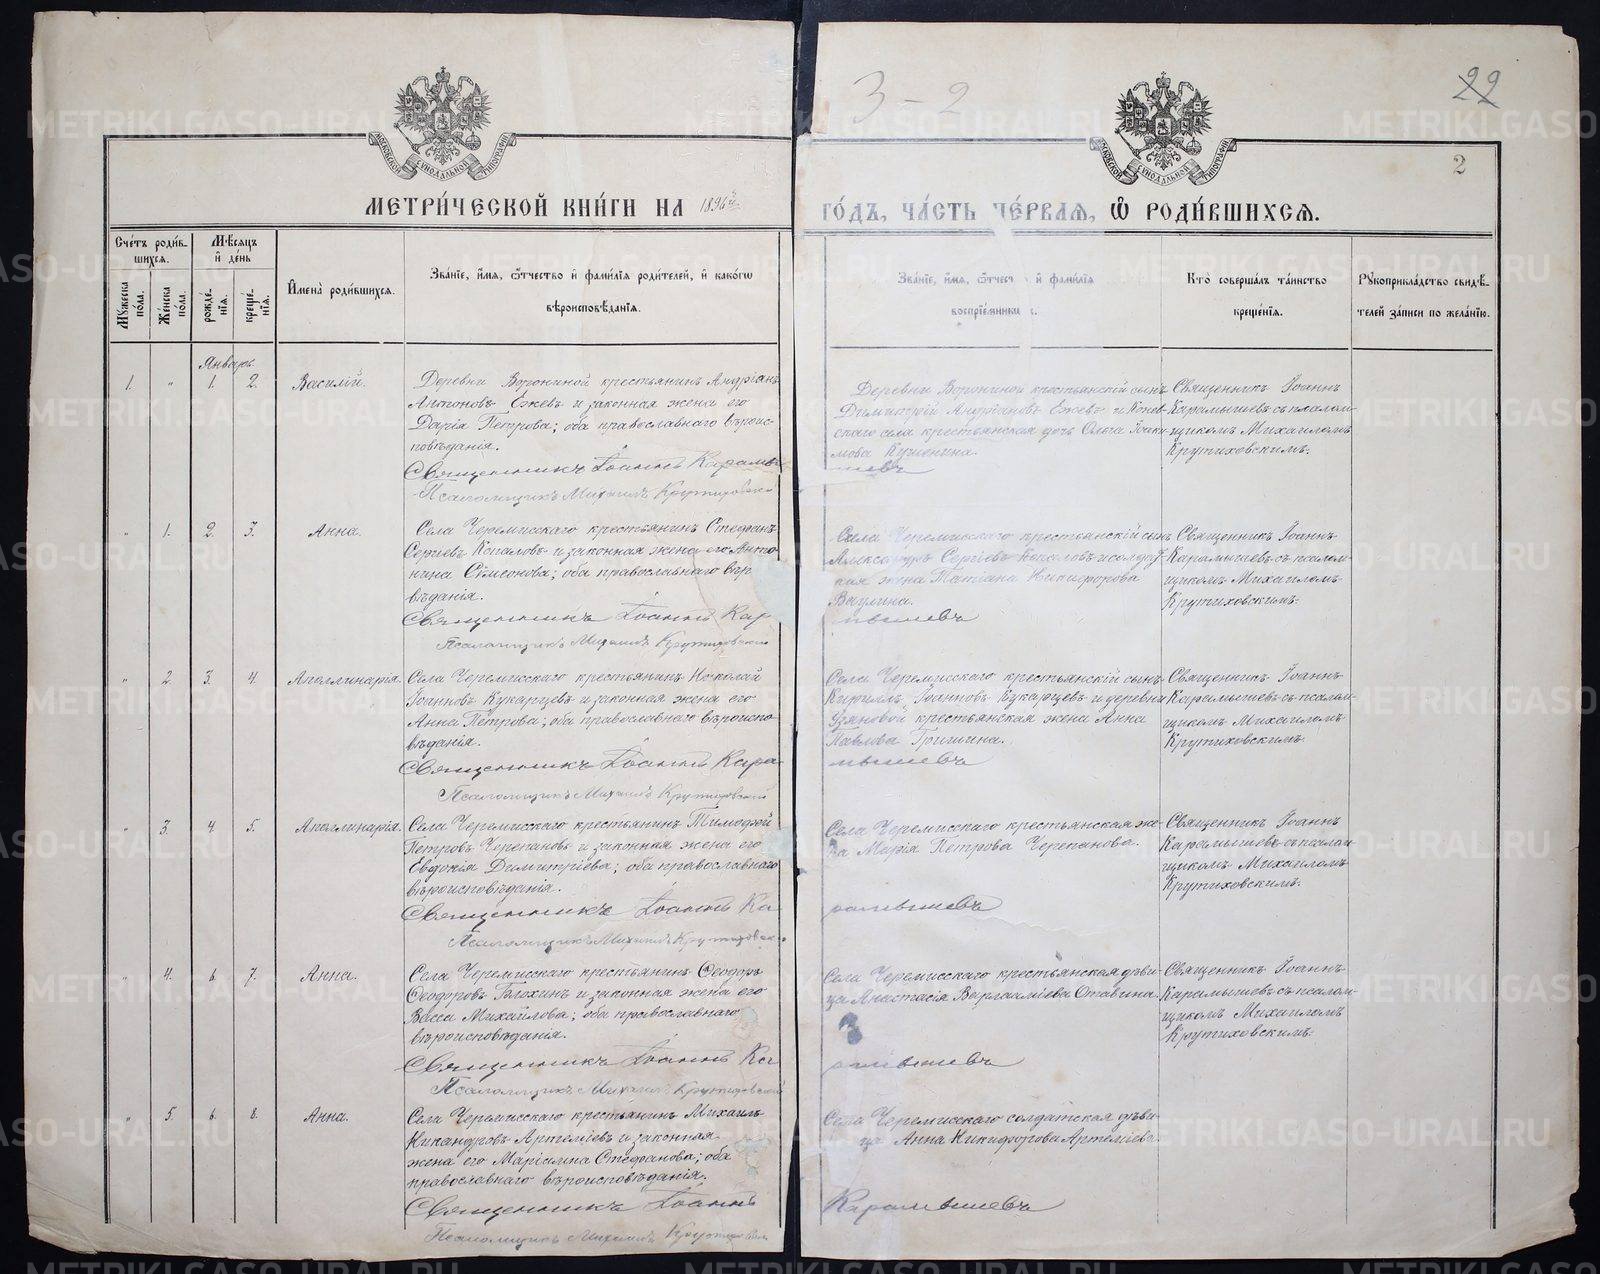 3-2
22
2
МОСКОВСКОЙ СУНОДАЛЬНОЙ ТИПОГРАФІИ
МОСКОВСКОЙ СУНОДАЛЬНОЙ ТИПОГРАФІИ
МЕТРИ́ЧЕСКОЙ КНИ́ГИ НА 1896й
ГО́ДЪ, ЧА́СТЬ ПЕ́РВАѦ, Ѽ РОДИ́ВШИХСѦ.
Сче́тъ роди́в-
шихсѧ.
Мꙋ́жеска по́ла.
Же́нска по́ла.
Мѣ́сяцъ
и҆ де́нь
рожде́-
нїѧ.
креще́-
нїѧ.
И҆мена̀ роди́вшихсѧ.
Зва́нїе, и҆́мѧ, ѻ҆́тчество и҆ фами́лїѧ роди́телей, и҆ како́гѡ
вѣроисповѣ́данїѧ.
Зва́нїе, и҆́мѧ, ѻ҆́тчест и҆ фами́лїѧ
воспрїе́мник
Кто̀ соверша́лъ та́инство
креще́нїѧ.
Рꙋкоприкла́дство свидѣ́-
телей за́писи по жела́нїю.
Январь.
1. " 1. 2. Василій.
Деревни Ворониной крестьянинъ Андріанъ
Антоновъ Ежевъ и законная жена его
Дарія Петрова; оба православнаго вѣроис-
повѣданія.
Священникъ Іоаннъ Карамы
шевъ
Псаломщикъ Михаилъ Крутиховск
Деревни Ворониной крестьянскій сынъ
Димитрій Андріановъ Ежевъ и Конев-
скаго села крестьянская дочь Ольга Іоаки-
мова Кушенина.
Священникъ Іоаннъ
Карамышевъ съ псалом-
щикомъ Михаиломъ
Крутиховскимъ.
" 1. 2. 3. Анна.
Села Черемисскаго крестьянинъ Стефанъ
Сергіевъ Копаловъ и законная жена его Анто-
нина Сѵмеонова; оба православнаго вѣр
вѣданія.
Священникъ Іоаннъ Кар
мышевъ
Псаломщикъ Михаилъ Крутиховскій
Села Черемисскаго крестьянскій сынъ
Александръ Сергіевъ Копаловъ и солдат-
кая жена Татіана Никифорова
Ваулина.
Священникъ Іоаннъ
Карамышевъ съ псалом-
щикомъ Михаиломъ
Крутиховскимъ.
" 2. 3. 4. Аполлинарія.
Села Черемисскаго крестьянинъ Николай
Іоанновъ Кукарцевъ и законная жена его
Анна Петрова; оба православнаго вѣроиспо
вѣданія.
Священникъ Іоаннъ Кара
мышевъ
Псаломщикъ Михаилъ Крутиховскій
Села Черемисскаго крестьянскій сынъ
Кириллъ Іоанновъ Кукарцевъ и деревни
Узяновой крестьянская жена Анна
Павлова Григина.
Священникъ Іоаннъ
Карамышевъ съ псалом-
щикомъ Михаиломъ
Крутиховскимъ.
" 3. 4. 5. Аполлинарія.
Села Черемисскаго крестьянинъ Тимофей
Петровъ Черепановъ и законная жена его
Евдокія Димитріева; оба православнаго
вѣроисповѣданія.
Священникъ Іоаннъ Ка
рамышевъ
Псаломщикъ Михаилъ Крутиховск
Села Черемисскаго крестьянская же-
на Марія Петрова Черепанова.
Священникъ Іоаннъ
Карамышевъ съ псалом-
щикомъ Михаиломъ
Крутиховскимъ.
" 4. 6. 7. Анна.
Села Черемисскаго крестьянинъ Ѳеодоръ
Ѳеодоровъ Блохинъ и законная жена его
Васса Михаилова; оба православнаго
вѣроисповѣданія.
Священникъ Іоаннъ Ка
рамышевъ
Псаломщикъ Михаилъ Крутиховскій
Села Черемисскаго крестьянская дѣви-
ца Анастасія Варлаамiева Отавина.
Священникъ Іоаннъ
Карамышевъ съ псалом-
щикомъ Михаиломъ
Крутиховскимъ.
" 5. 6. 8. Анна.
Села Черемисскаго крестьянинъ Михаилъ
Никандровъ Артеміевъ и законная
жена его Маріамна Стефанова; оба
православнаго вѣроисповѣданія.
Священникъ Іоаннъ
Карамышевъ
Псаломщикъ Михаилъ Крутиховскій
Села Черемисскаго солдатская дѣви-
ца Анна Никифорова Артеміева.
METRIKI.GASO-URAL.RU